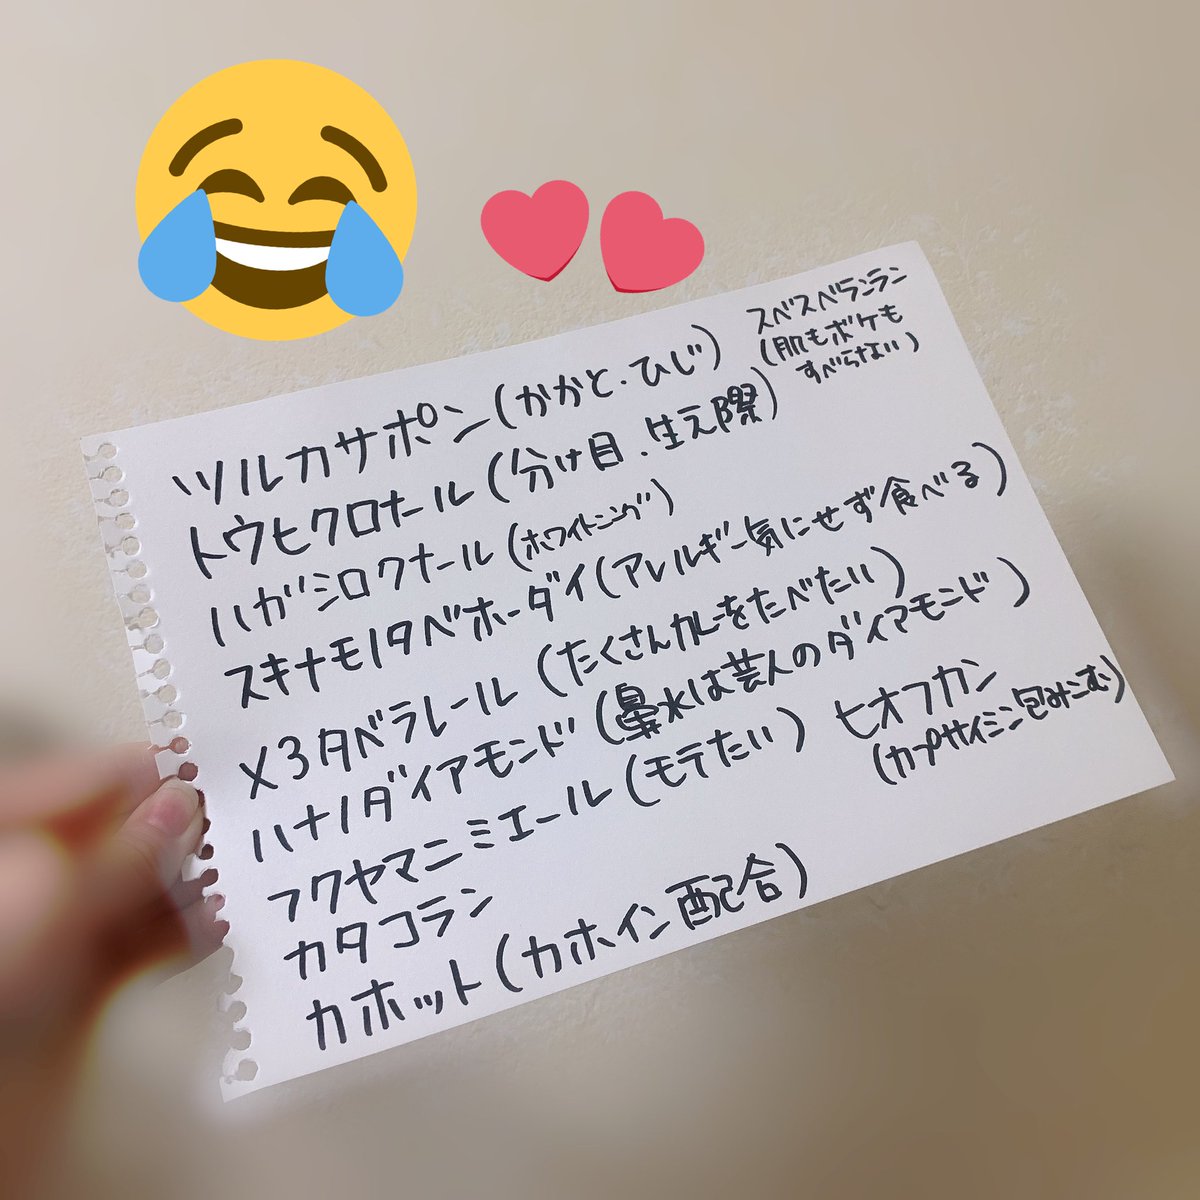 ツルカサポン(かかと・ひじ)
スベスベランラン
(肌もボケも
すべらない)
トウヒクロナール(分け目、生え際)
ハガシロクナール(ホワイトニング)
スキナモノタベホーダイ(アレルギー気にせず食べる)
×3タベラレール(たくさんカレーをたべたい)
ハナノダイアモンド(鼻水は芸人のダイアモンド)
フクヤマニミエール(モテたい)
ヒオフカン
(カプサイミン包みこむ)
カタコラン
カホット(カホイン配合)